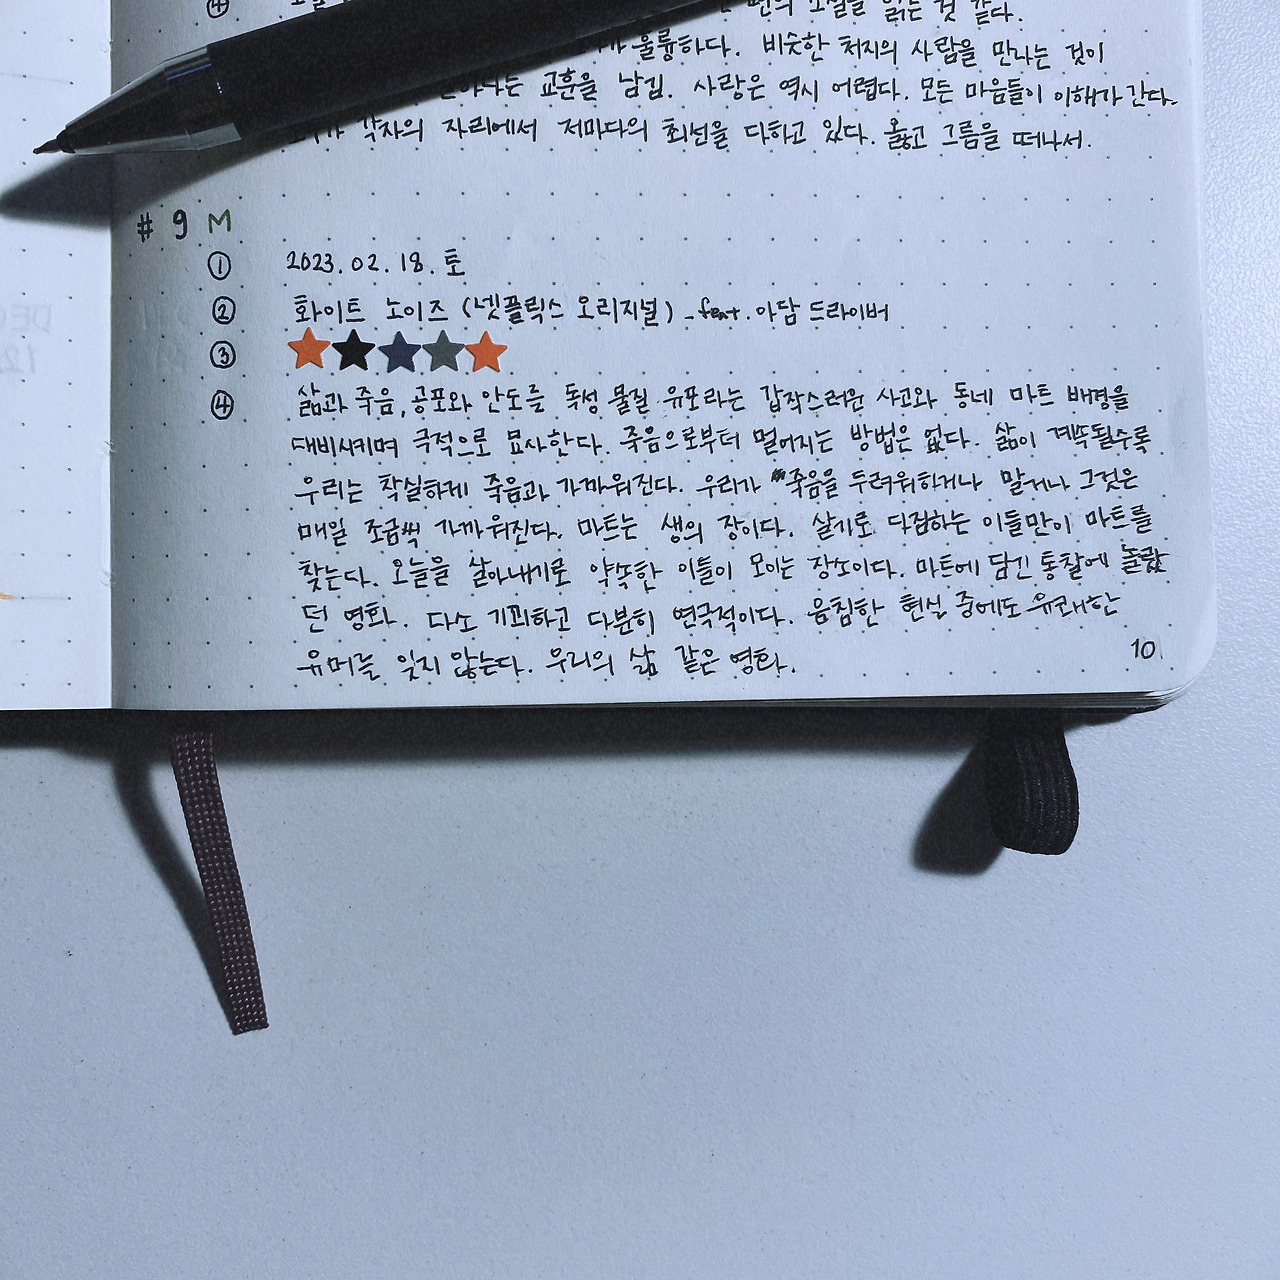 ④
소설을 읽는 것 같다.
훌륭하다. 비슷한 처지의 사람을 만나는 것이
교훈을 남김. 사랑은 역시 어렵다. 모든 마음들이 이해가 간다.
각자의 자리에서 저마다의 최선을 다하고 있다. 옳고 그름을 떠나서.
# 9 M
① 2023. 02. 18. 토
② 화이트 노이즈 (넷플릭스 오리지널) - feat. 아담 드라이버
③
④ 삶과 죽음, 공포와 안도를 독성 물질 유포라는 갑작스러운 사고와 동네 마트 배경을
대비시키며 극적으로 묘사한다. 죽음으로부터 멀어지는 방법은 없다. 삶이 계속될수록
우리는 착실하게 죽음과 가까워진다. 우리가 죽음을 두려워하거나 말거나 그것은
매일 조금씩 가까워진다. 마트는 생의 장이다. 살기로 다짐하는 이들만이 마트를
찾는다. 오늘을 살아내기로 약속한 이들이 모이는 장소이다. 마트에 담긴 통찰에 놀랐
던 영화. 다소 기괴하고 다분히 연극적이다. 음침한 현실 중에도 유쾌한
유머를 잊지 않는다. 우리의 삶 같은 영화.
10